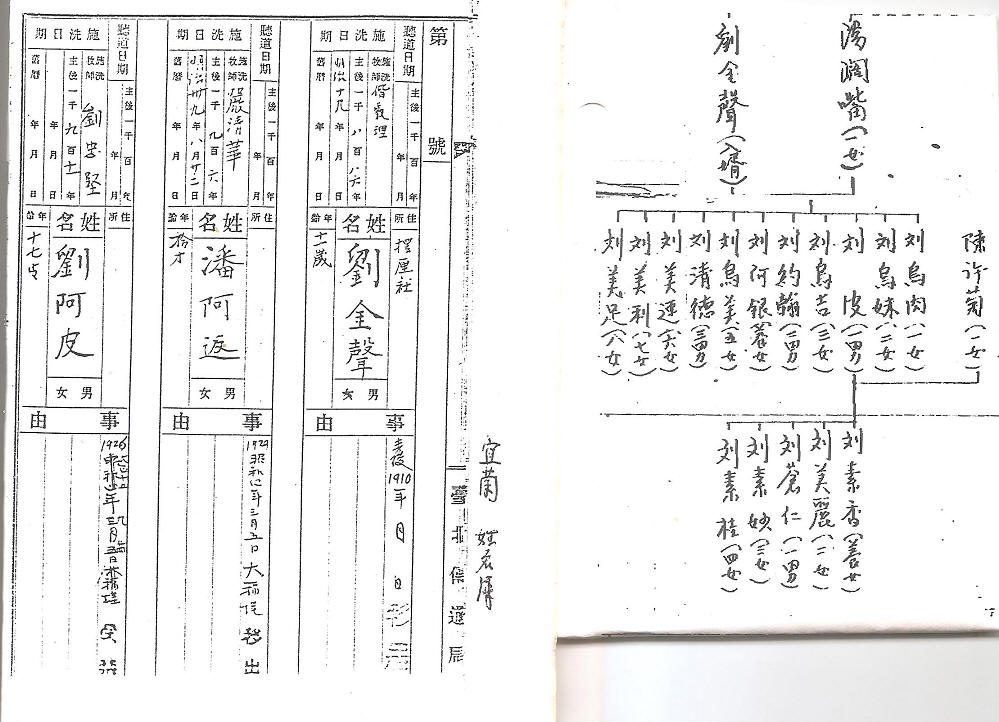 第 號
聽道日期 主後一千 百 年 月
施洗日期
施洗牧師 偕叡理
主後一千八百八六年
明治十九年 月 日
舊曆 年 月 日
住所 擺厘社
姓名 劉金聲
年齡 十一歲
男 女
事由
主後1910年 月 日移居
聽道日期 主後一千 百 年 月
施洗日期
施洗牧師 嚴清華
主後一千九百六年
明治卅九年八月廿二日
舊曆 年 月 日
住所
姓名 潘阿返
年齡
男 女
事由
1929昭和四年三月五日
移出
聽道日期 主後一千 百 年 月
施洗日期
施洗牧師 劉忠堅
主後一千九百十一年
年 月 日
舊曆 年 月 日
住所
姓名 劉阿皮
年齡 十七才
男 女
事由
1926
宜蘭 姓名簿
湯闊嘴(一女)
劉金聲(入婿)
陳許菊(一女)
刘烏肉(一女)
刘烏妹(二女)
刘皮(一男)
刘烏吉(三女)
刘約翰(二男)
刘阿銀(養女)
刘烏美(五女)
刘清德(三男)
刘美運(六女)
刘美利(七女)
刘美足(八女)
刘素香(養女)
刘美麗(二女)
刘蒼仁(一男)
刘素妙(三女)
刘素桂(四女)